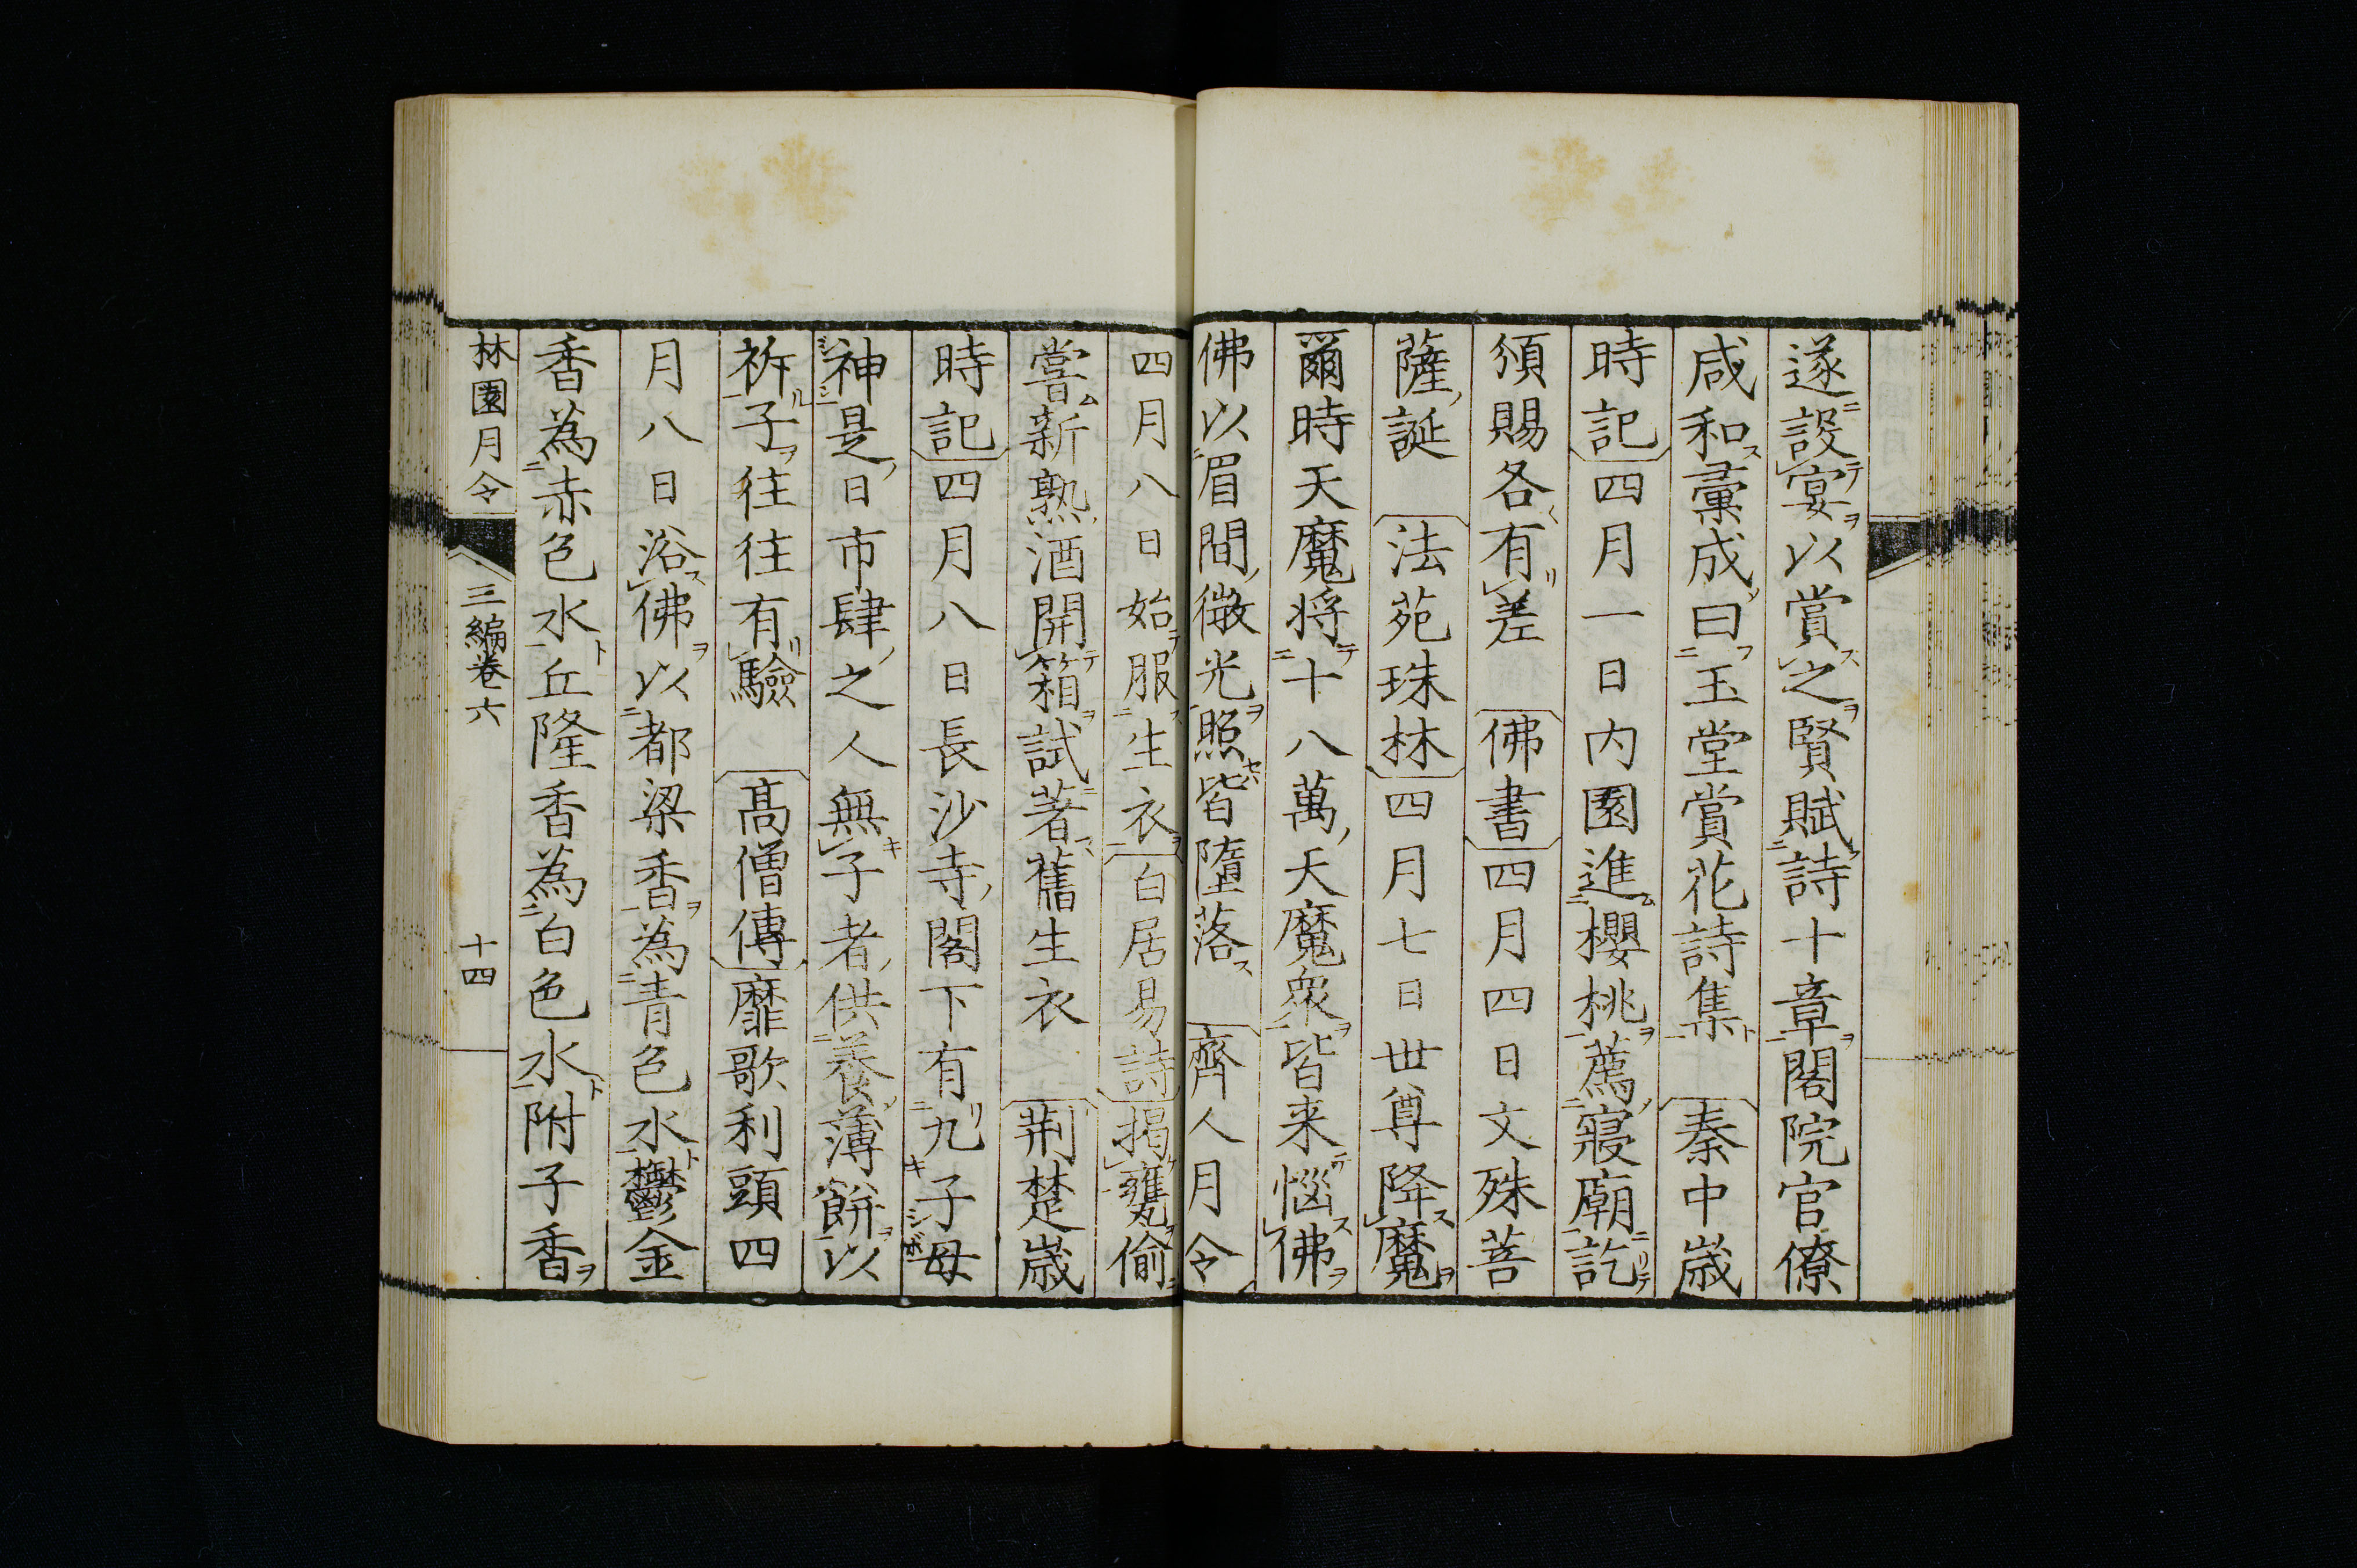 遂設宴以賞之賢賦詩十章閣院官僚
咸和彙成曰玉堂賞花詩集　秦中歳
時記四月一日内園進櫻桃薦寢廟訖
頒賜各有差　佛書四月四日文殊菩
薩誕　法苑珠林四月七日世尊降魔
爾時天魔将十八萬天魔衆皆来惱佛
佛以眉間微光照皆墮落　齊人月令
四月八日始服生衣白居易詩揭甕偷
嘗新熟酒開箱試著舊生衣　荆楚歳
時記四月八日長沙寺閣下有九子母
神是日市肆之人無子者供養薄餅以
祈子往往有驗　髙僧傳靡歌利頭四
月八日浴佛以都梁香為青色水欝金
香為赤色水丘隆香為白色水附子香
林園月令　三編卷六　十四